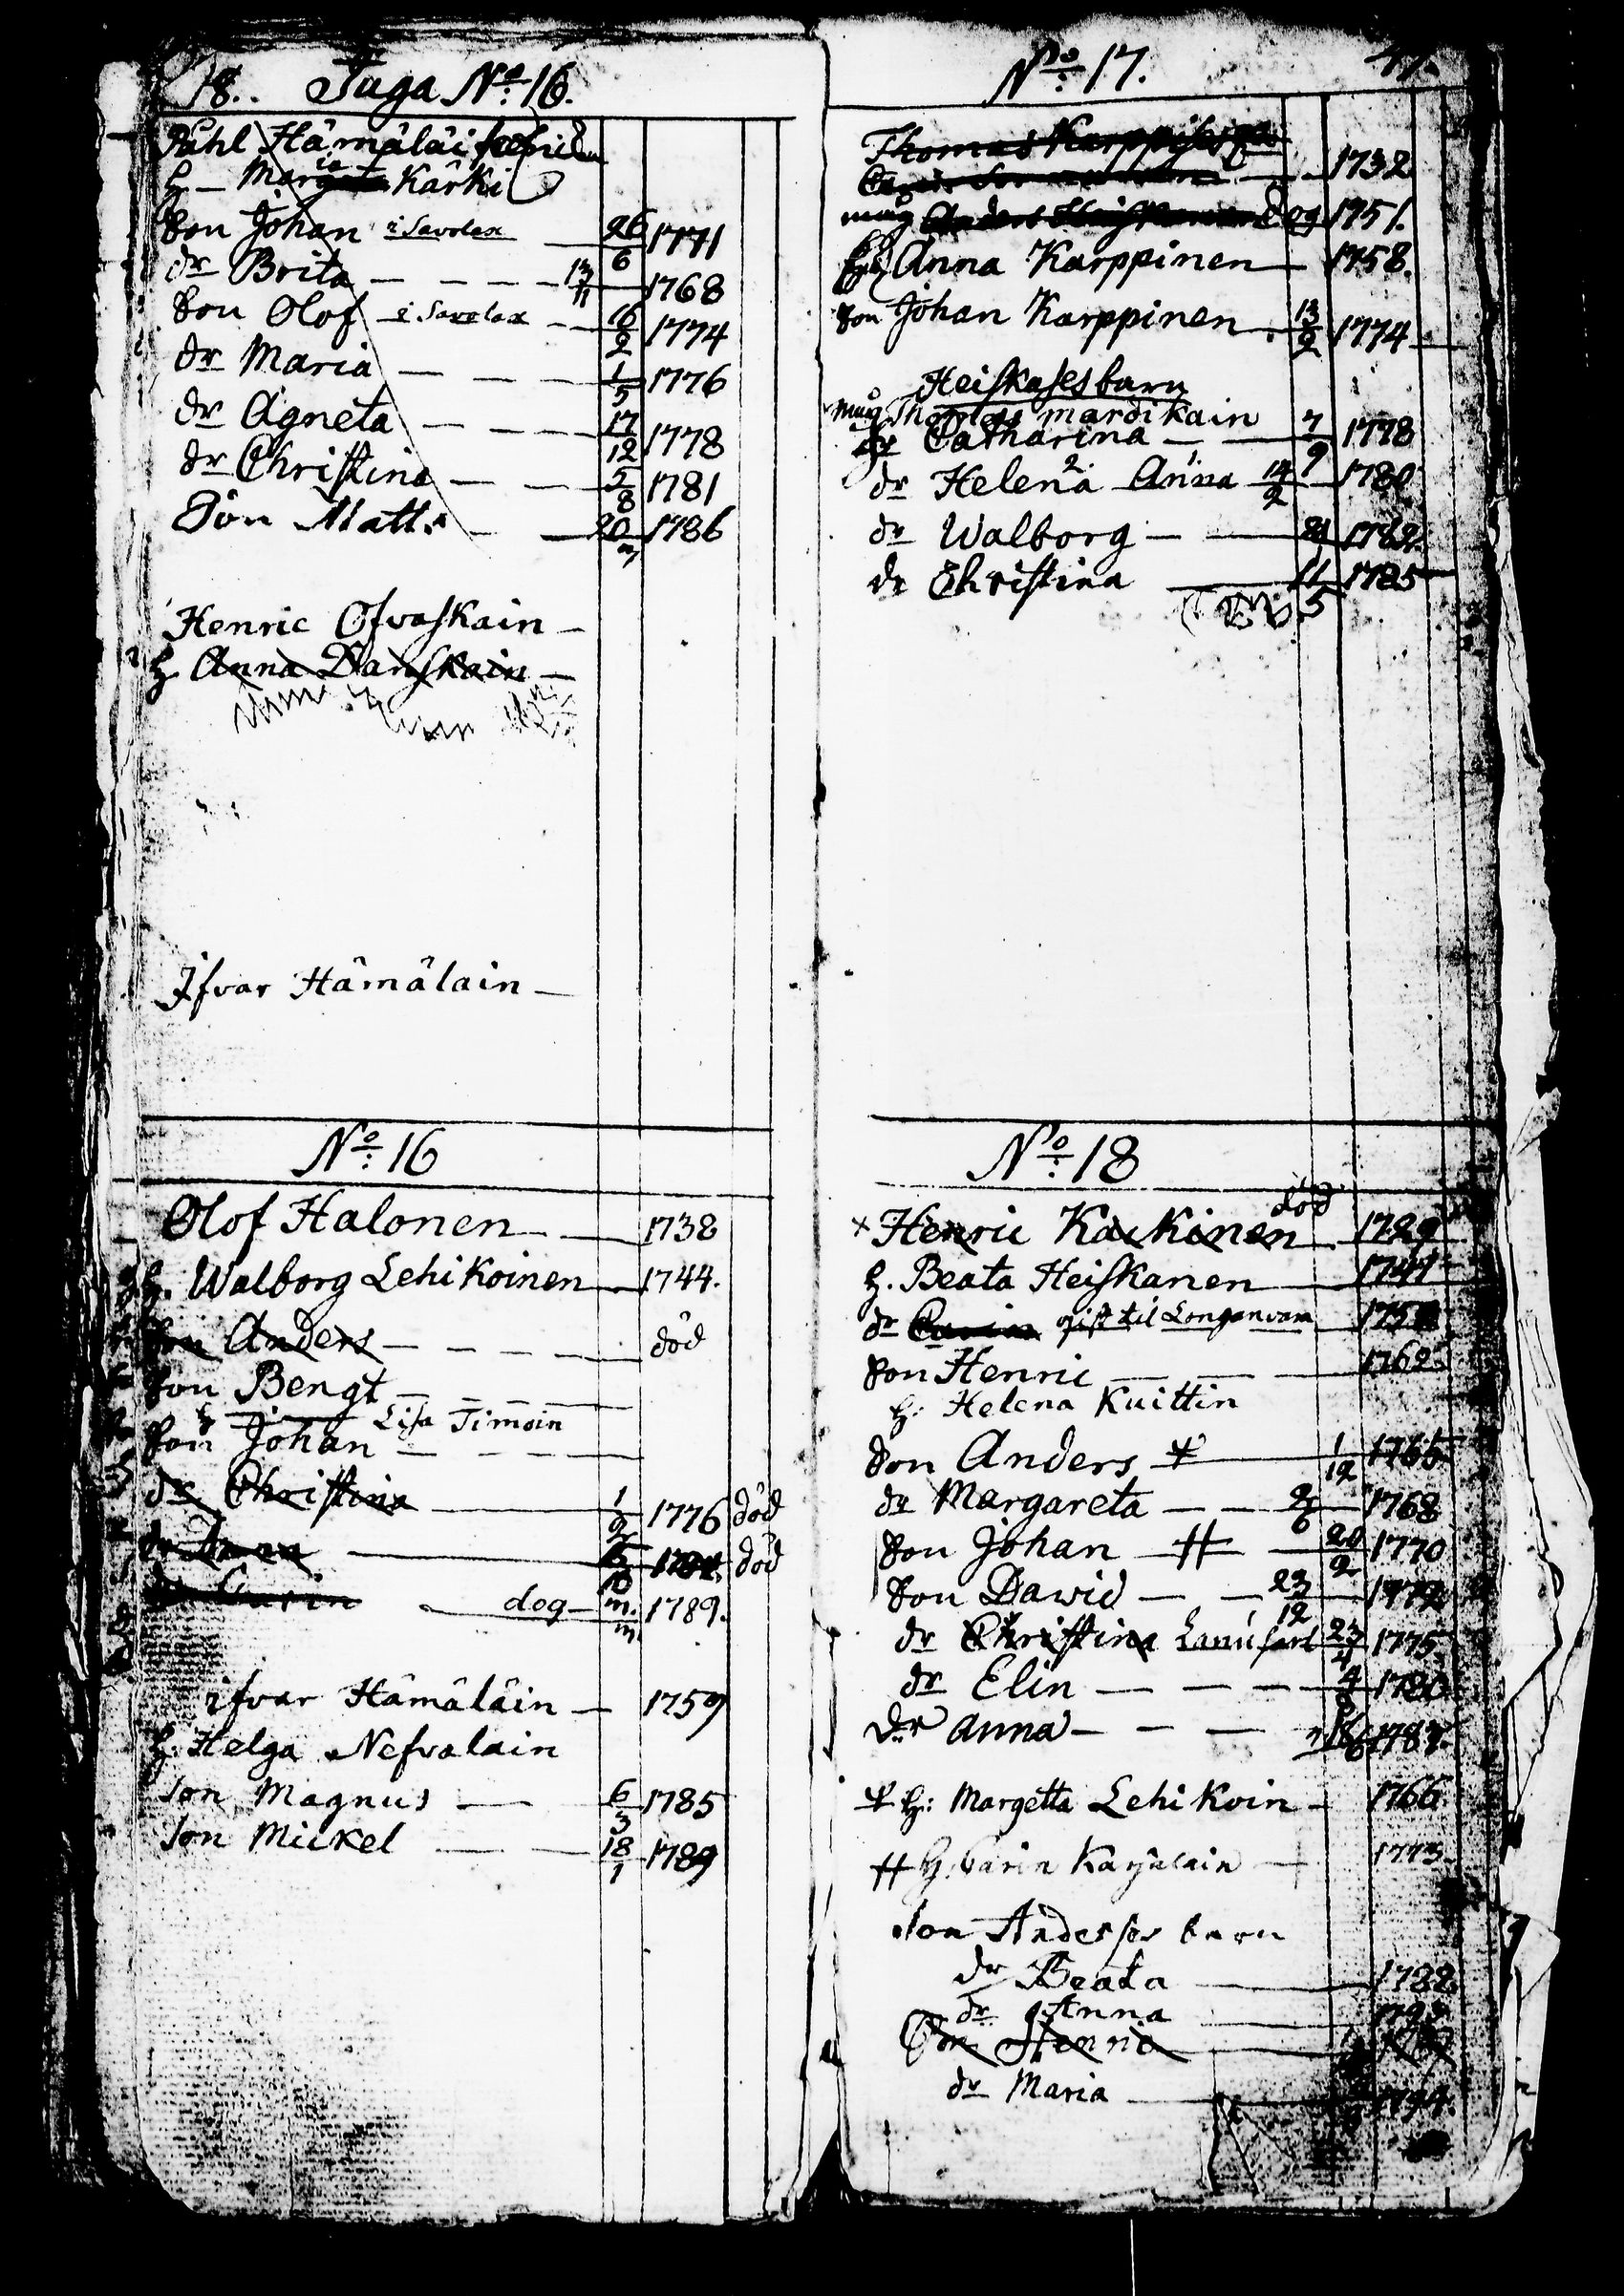 78. Juga No: 16.
Påhl Hämäläi
H - Marg Kärki
Son Johan i Savolax 26/6 1771
dr Brita 13/11 1768
Son Olof i Savolax 16/2 1774
dr Maria 1/5 1776
dr Agneta 17/12 1778
dr Christina 5/8 1781
Son Matts 20/m 1786
Henric Ofvaskain
H Anna Danskain
Ifvar Hämälain
No: 16
Olof Halonen 1738
H. Walborg Lehikoinen 1744.
Son Anders död
Son Bengt
H Lisa Timoin
Son Johan
dr Christina 1/9 1776 död
död
dog m. 1789.
ifvar Hämäläin 1759
H. Helga Nefvalain
Son Magnus 6/3 1785
Son Mickel 18/1 1789
No: 17.
Thomas Karppi 1732
måg 1751.
Anna Karppinen 1758.
Son Johan Karppinen 13/2 1774
Heiskases barn
måg Thomas mardikain
dr Catharina 7/9 1778
dr Helena 2. Anna 1. 14/2 1780
dr Walborg 1782
dr Christina 11/5 1785
No: 18
död
Henric Kaikinen 1729
H. Beata Heiskanen 1741
dr gift til Longanvara
Son Henric 1762
H: Helena Kuittin
Son Anders 1/12 1765
dr Margareta 2/6 1768
Son Johan 20/2 1770
Son Dawid 23/12
dr Christina 23/4 1775
dr Elin 1780
dr Anna
H: Margetta Lehikoin 1766
H. Carin Karjalain 1773
Son Anderses barn
dr Beata 1788
dr Anna
Son Henric
dr Maria 1794.